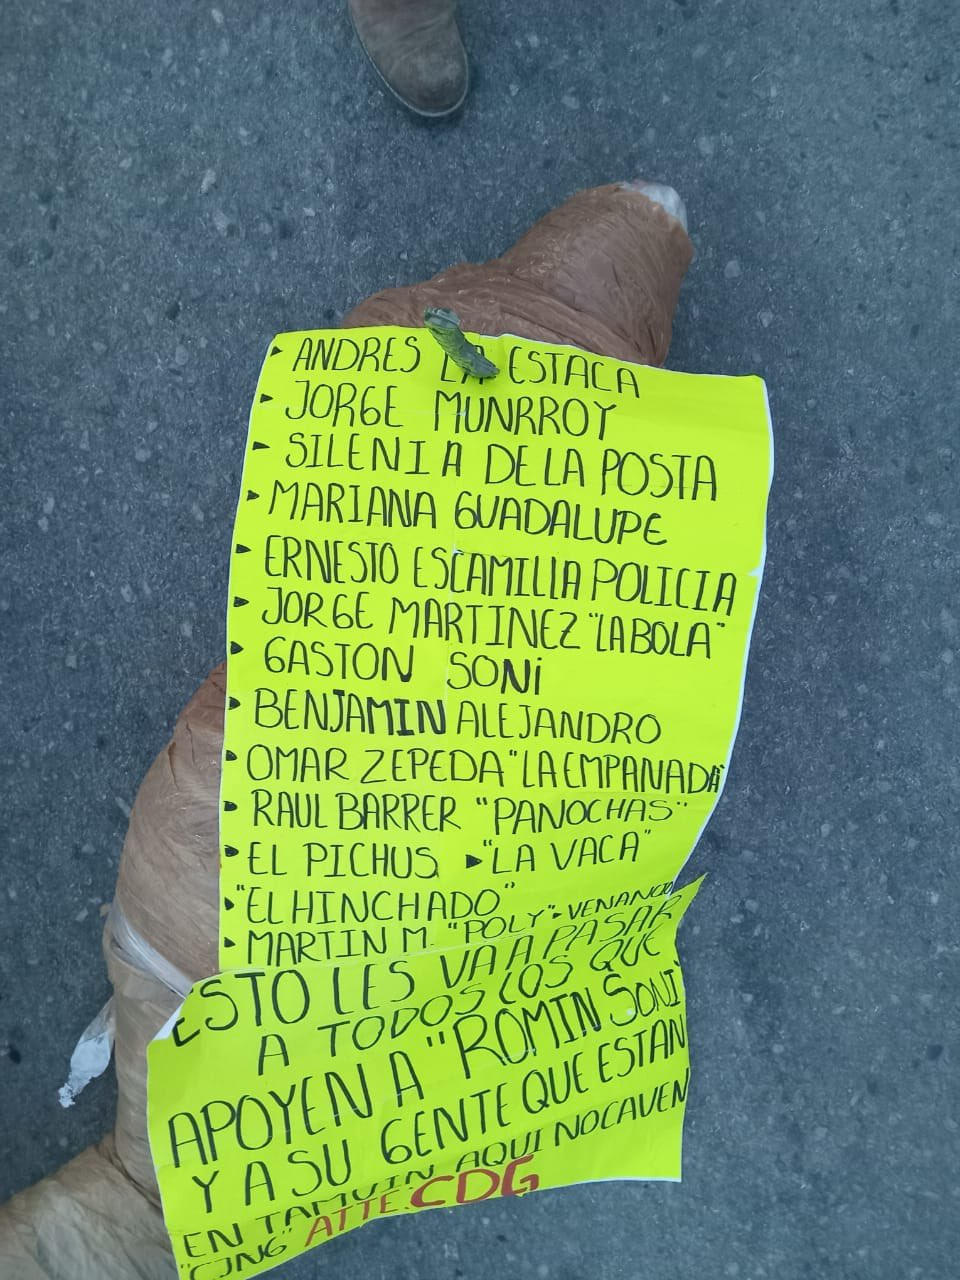 ANDRES LA ESTACA
JORGE MUNRROY
SILENIA DE LA POSTA
MARIANA GUADALUPE
ERNESTO ESCAMILLA POLICIA
JORGE MARTINEZ "LA BOLA"
GASTON SONi
BENJAMIN ALEJANDRO
OMAR ZEPEDA "LA EMPANADA"
RAUL BARRER "PANOCHAS"
EL PICHUS ▸"LA VACA"
"EL HINCHADO"
MARTIN M. "POLY" ▸VENANCIO
ESTO LES VA A PASAR
A TODOS LOS QUE
APOYEN A "ROMIN SONI"
Y A SU GENTE QUE ESTAN
EN TAMUIN AQUI NO CAVEN
"CJNG" ATTE: CDG